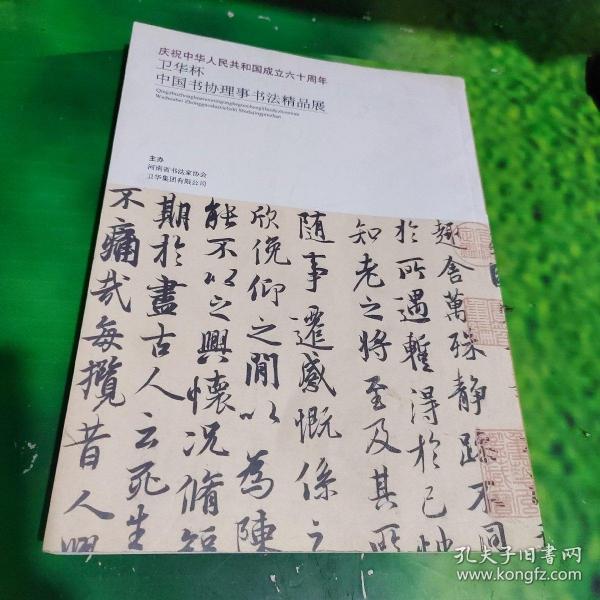 庆祝中华人民共和国成立六十周年
卫华杯
中国书协理事书法精品展
主办
河南省书法家协会
卫华集团有限公司
趣舍萬殊静躁不同
於所遇蹔得於己怏
知老之将至及其所
随事遷感慨係之
欣俛仰之閒以為陳
能不以之興懷况脩短
期於盡古人云死生
不痛哉每攬昔人興
孔夫子旧书网
www.kongfz.com